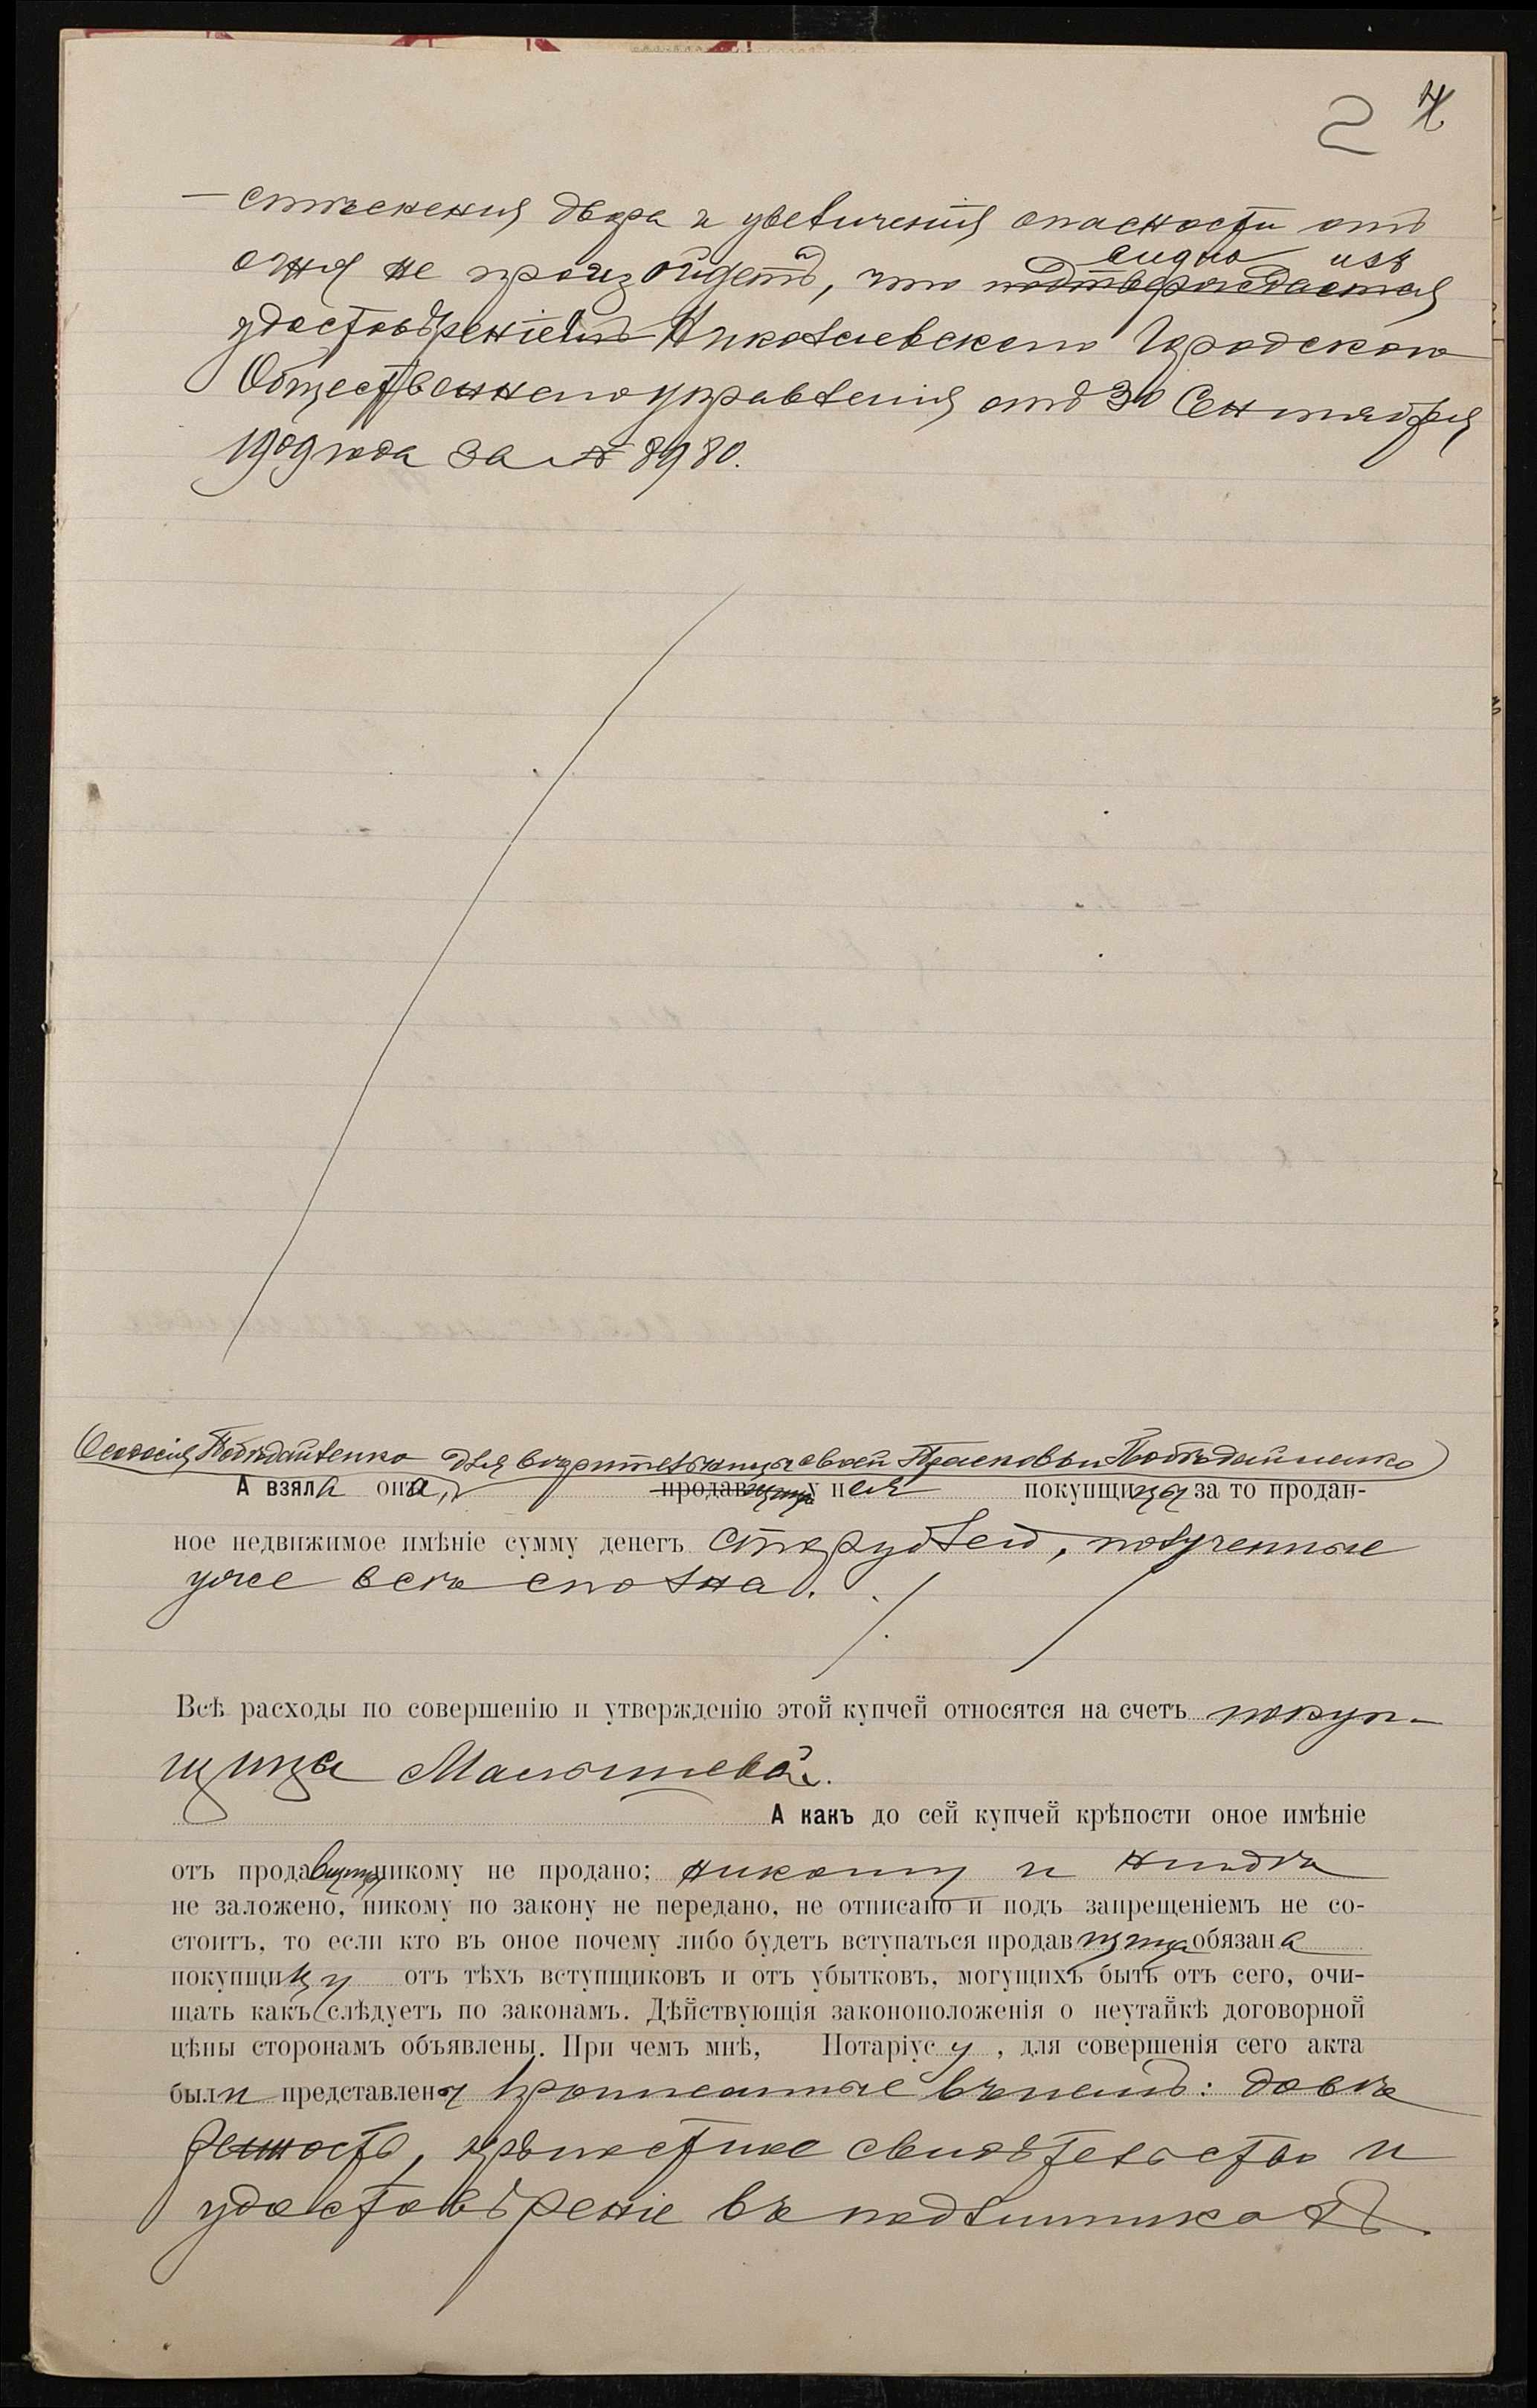 2 4
— стѣсненія двора и увеличенія опасности отъ
огня не произойдетъ, что подтверждается видно изъ
удостовѣреніемъ Николаевскаго Городского
Общественнаго управленія отъ 30 Сентября
1909 года за № 8980.
Ѳеодосія Побѣдайленко для вѣрительницы своей Прасковьи Побѣдайленко
А взяла она, продавщица у нея покупщицы за то продан-
ное недвижимое имѣніе сумму денегъ сто рублей, полученные
уже всѣ сполна.
Всѣ расходы по совершенію и утвержденію этой купчей относятся на счетъ покуп-
щицы Малышевой.
А какъ до сей купчей крѣпости оное имѣніе
отъ продавщицы никому не продано; никому и нигдѣ
не заложено, никому по закону не передано, не отписано и подъ запрещеніемъ не со-
стоитъ, то если кто въ оное почему либо будетъ вступаться продавщица обязана
покупщицу отъ тѣхъ вступщиковъ и отъ убытковъ, могущихъ быть отъ сего, очи-
щать какъ слѣдуетъ по законамъ. Дѣйствующія законоположенія о неутайкѣ договорной
цѣны сторонамъ объявлены. При чемъ мнѣ, Нотаріусу, для совершенія сего акта
были представлены прописанные въ немъ: довѣ
ренность, крѣпостное свидѣтельство и
удостовѣреніе въ подлинникахъ.